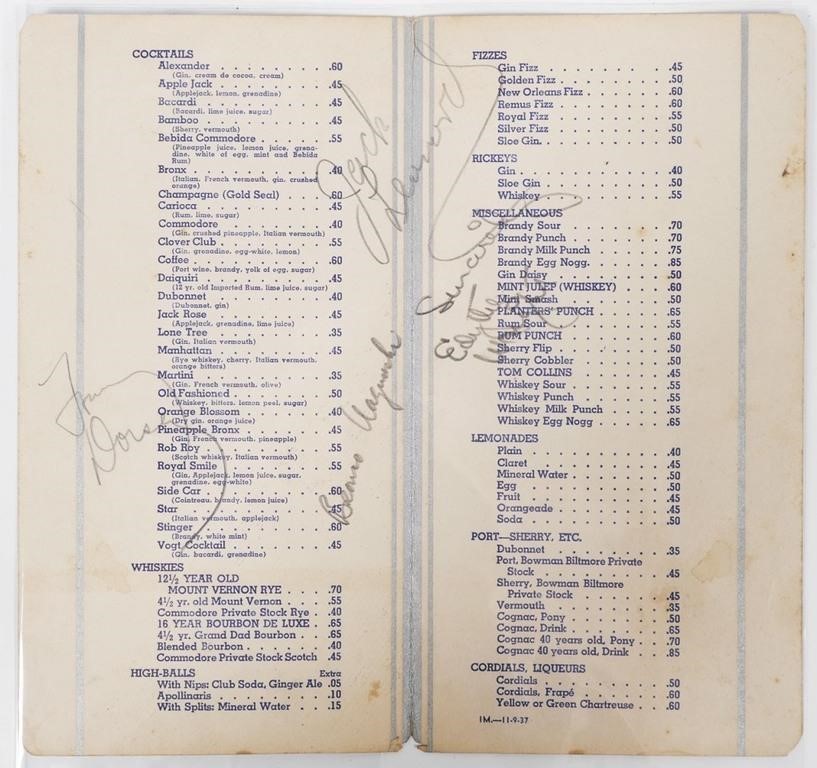 COCKTAILS
Alexander . . . . . . . . .60
(Gin, cream de cocoa, cream)
Apple Jack . . . . . . . . .45
(Applejack, lemon, grenadine)
Bacardi . . . . . . . . .45
(Bacardi, lime juice, sugar)
Bamboo . . . . . . . . .45
(Sherry, vermouth)
Bebida Commodore . . . . . .55
(Pineapple juice, lemon juice, grena-
dine, white of egg, mint and Bebida
Rum)
Bronx . . . . . . . . .40
(Italian, French vermouth, gin, crushed
orange)
Champagne (Gold Seal) . . . .60
Carioca . . . . . . . . .45
(Rum, lime, sugar)
Commodore . . . . . . . .40
(Gin, crushed pineapple, Italian vermouth)
Clover Club . . . . . . . .55
(Gin, grenadine, egg-white, lemon)
Coffee . . . . . . . . .60
(Port wine, brandy, yolk of egg, sugar)
Daiquiri . . . . . . . . .45
(12 yr. old Imported Rum, lime juice, sugar)
Dubonnet . . . . . . . . .40
(Dubonnet, gin)
Jack Rose . . . . . . . . .45
(Applejack, grenadine, lime juice)
Lone Tree . . . . . . . . .35
(Gin, Italian vermouth)
Manhattan . . . . . . . . .45
(Rye whiskey, cherry, Italian vermouth,
orange bitters)
Martini . . . . . . . . .35
(Gin, French vermouth, olive)
Old Fashioned . . . . . . .50
(Whiskey, bitters, lemon peel, sugar)
Orange Blossom . . . . . . .40
(Dry gin, orange juice)
Pineapple Bronx . . . . . . .45
(Gin, French vermouth, pineapple)
Rob Roy . . . . . . . . .55
(Scotch whiskey, Italian vermouth)
Royal Smile . . . . . . . .55
(Gin, Applejack, lemon juice, sugar,
grenadine, egg-white)
Side Car . . . . . . . . .60
(Cointreau, brandy, lemon juice)
Star . . . . . . . . .45
(Italian vermouth, applejack)
Stinger . . . . . . . . .60
(Brandy, white mint)
Vogt Cocktail . . . . . . .45
(Gin, bacardi, grenadine)
WHISKIES
12½ YEAR OLD
MOUNT VERNON RYE . . . .70
4½ yr. old Mount Vernon . . . .55
Commodore Private Stock Rye . .40
16 YEAR BOURBON DE LUXE . .65
4½ yr. Grand Dad Bourbon . . .65
Blended Bourbon . . . . . .40
Commodore Private Stock Scotch .45
HIGH-BALLS Extra
With Nips: Club Soda, Ginger Ale .05
Apollinaris . . . . . . . .10
With Splits: Mineral Water . . .15
Dorsey
Jack
Leonard
Sincerely
Edythe
Wright
FIZZES
Gin Fizz . . . . . . . . .45
Golden Fizz . . . . . . . .50
New Orleans Fizz . . . . . . .60
Remus Fizz . . . . . . . .60
Royal Fizz . . . . . . . .55
Silver Fizz . . . . . . . .50
Sloe Gin. . . . . . . . .50
RICKEYS
Gin . . . . . . . . .40
Sloe Gin . . . . . . . . .50
Whiskey . . . . . . . . .55
MISCELLANEOUS
Brandy Sour . . . . . . . .70
Brandy Punch . . . . . . . .70
Brandy Milk Punch . . . . . .75
Brandy Egg Nogg. . . . . . .85
Gin Daisy . . . . . . . .50
MINT JULEP (WHISKEY) . . . .60
Mint Smash . . . . . . . .50
PLANTERS' PUNCH . . . . . .65
Rum Sour . . . . . . . . .55
RUM PUNCH . . . . . . . .60
Sherry Flip . . . . . . . .50
Sherry Cobbler . . . . . . .50
TOM COLLINS . . . . . . .45
Whiskey Sour . . . . . . . .55
Whiskey Punch . . . . . . .55
Whiskey Milk Punch . . . . .55
Whiskey Egg Nogg . . . . . .65
LEMONADES
Plain . . . . . . . . .40
Claret . . . . . . . . .45
Mineral Water . . . . . . .50
Egg . . . . . . . . .50
Fruit . . . . . . . . .45
Orangeade . . . . . . . .45
Soda . . . . . . . . .50
PORT—SHERRY, ETC.
Dubonnet . . . . . . . . .35
Port, Bowman Biltmore Private
Stock . . . . . . . . .45
Sherry, Bowman Biltmore
Private Stock . . . . . .45
Vermouth . . . . . . . . .35
Cognac, Pony . . . . . . . .50
Cognac, Drink . . . . . . .65
Cognac 40 years old, Pony . . .70
Cognac 40 years old, Drink . . .85
CORDIALS, LIQUEURS
Cordials . . . . . . . . .50
Cordials, Frapé . . . . . . .60
Yellow or Green Chartreuse . . .60
1M.—11-9-37